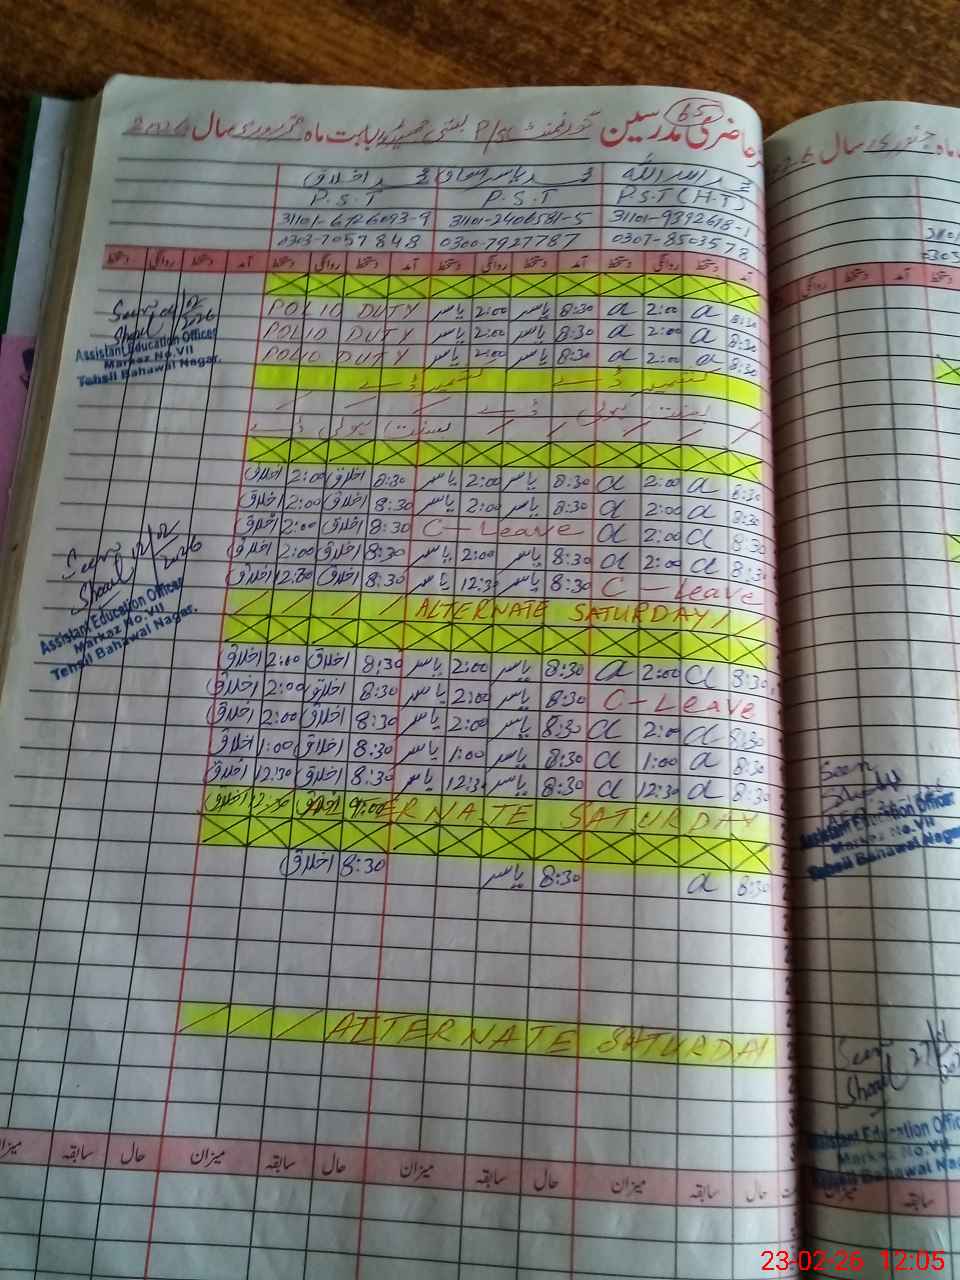 65
حاضری مدرسین گورنمنٹ P/S بستی بابت ماہ فروری سال 2026
محمد اسد اللہ محمد یاسر محمد اخلاق
P.S.T (H.T) P.S.T P.S.T
31101-9392618-1 31101-2406581-5 31101-6726093-9
0307-8503578 0300-7927787 0303-7057848
آمد دستخط روانگی دستخط آمد دستخط روانگی دستخط آمد دستخط روانگی دستخط آمد دستخط روانگی دستخط
8:30 a 2:00 a 8:30 یاسر 2:00 یاسر POLIO DUTY
8:30 a 2:00 a 8:30 یاسر 2:00 یاسر POLIO DUTY
8:30 a 2:00 a 8:30 یاسر 2:00 یاسر POLIO DUTY
کشمیر ڈے کشمیر ڈے
بسنت ہولی ڈے
بسنت ہولی ڈے
8:30 a 2:00 a 8:30 یاسر 2:00 یاسر 8:30 اخلاق 2:00 اخلاق
8:30 a 2:00 a 8:30 یاسر 2:00 یاسر 8:30 اخلاق 2:00 اخلاق
8:30 a 2:00 a C-Leave 8:30 اخلاق 2:00 اخلاق
8:30 a 2:00 a 8:30 یاسر 2:00 یاسر 8:30 اخلاق 2:00 اخلاق
C-Leave 8:30 یاسر 12:30 یاسر 8:30 اخلاق 12:30 اخلاق
ALTERNATE SATURDAY
8:30 a 2:00 a 8:30 یاسر 2:00 یاسر 8:30 اخلاق 2:00 اخلاق
C-Leave 8:30 یاسر 2:00 یاسر 8:30 اخلاق 2:00 اخلاق
8:30 a 2:00 a 8:30 یاسر 2:00 یاسر 8:30 اخلاق 2:00 اخلاق
8:30 a 1:00 a 8:30 یاسر 1:00 یاسر 8:30 اخلاق 1:00 اخلاق
8:30 a 12:30 a 8:30 یاسر 12:30 یاسر 8:30 اخلاق 12:30 اخلاق
ALTERNATE SATURDAY 9:00 اخلاق
8:30 a 8:30 یاسر 8:30 اخلاق
ALTERNATE SATURDAY
حال سابقہ میزان حال سابقہ میزان حال سابقہ میزان حال سابقہ میزان
Seen
Assistant Education Officer
Markaz No.VII
Tehsil Bahawal Nagar.
Seen
Assistant Education Officer
Markaz No.VII
Tehsil Bahawal Nagar.
ماہ جنوری سال
دستخط آمد دستخط روانگی
Seen
Assistant Education Officer
Markaz No.VII
Tehsil Bahawal Nagar
Seen
Assistant Education Offic
Markaz No.VII
Tehsil Bahawal Nag
سابقہ میزان
23-02-26 12:05